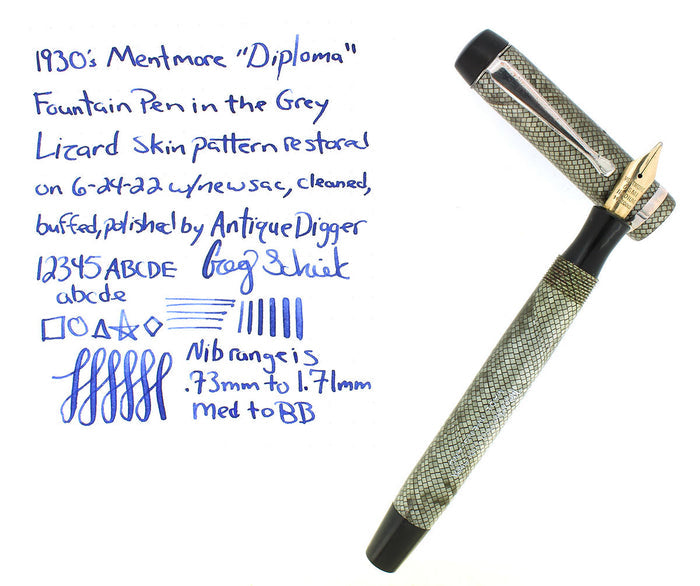 1930's Mentmore "Diploma"
Fountain Pen in the Grey
Lizard Skin pattern restored
on 6-24-22 w/new sac, cleaned,
buffed, polished by Antique Digger
12345 ABCDE Greg
abcde
Nib range is
.73mm to 1.71mm
Med to BB